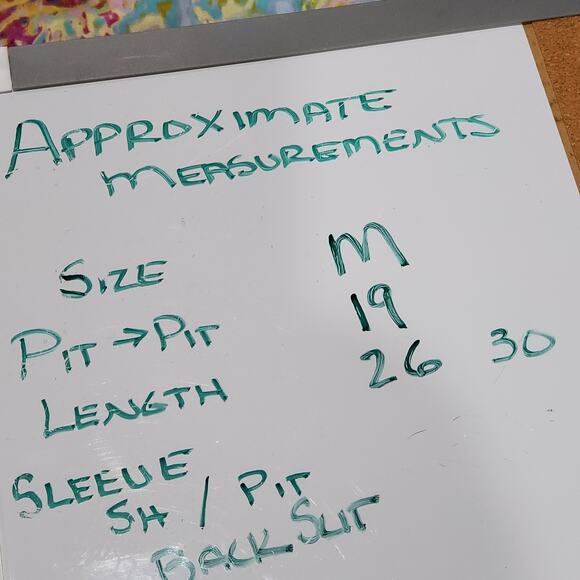 APPROXIMATE
MEASUREMENTS
SIZE M
PIT → PIT 19
LENGTH 26 30
SLEEVE
SH / PIT
BACK SLIT